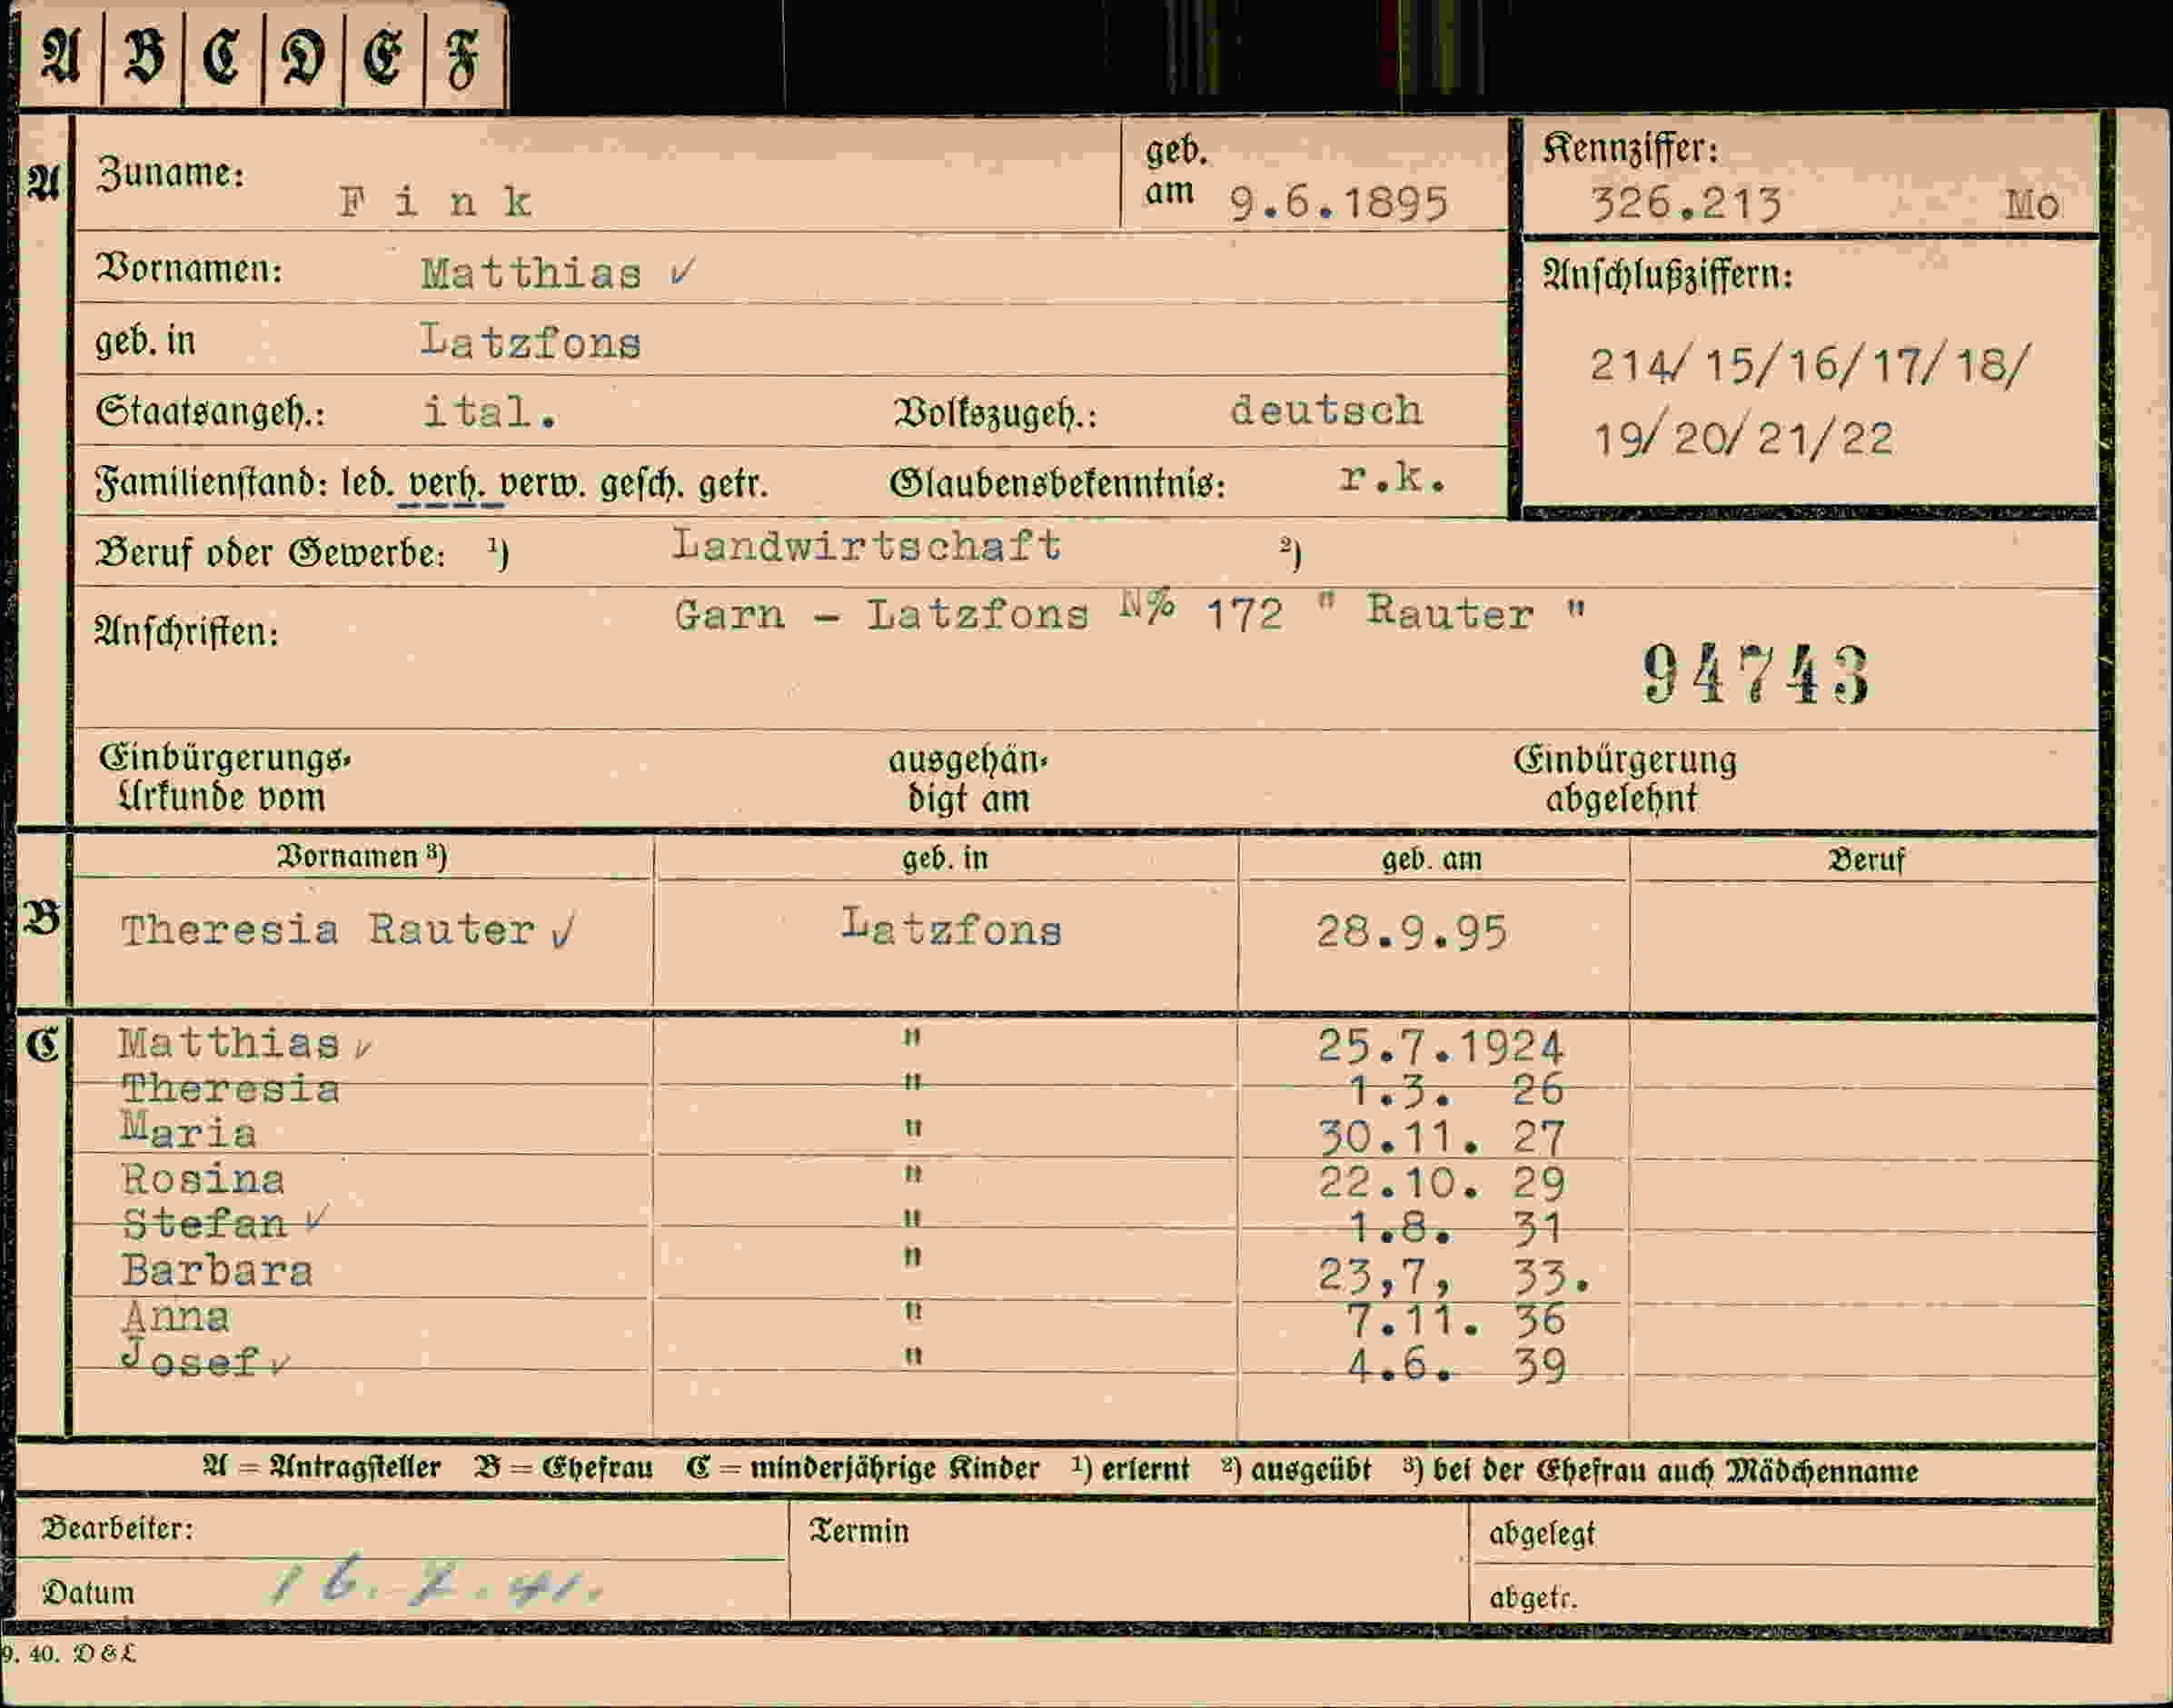 A B C D E F
A Zuname: Fink geb. am 9.6.1895 Kennziffer: 326.213 Mo
Vornamen: Matthias ✓ Anschlußziffern:
geb. in Latzfons 214/15/16/17/18/
Staatsangeh.: ital. Volkszugeh.: deutsch 19/20/21/22
Familienstand: led. verh. verw. gesch. getr. Glaubensbekenntnis: r.k.
Beruf oder Gewerbe: ¹) Landwirtschaft ²)
Anschriften: Garn - Latzfons N% 172 " Rauter "
94743
Einbürgerungs- ausgehän- Einbürgerung
Urkunde vom digt am abgelehnt
Vornamen ³) geb. in geb. am Beruf
B Theresia Rauter ✓ Latzfons 28.9.95
C Matthias ✓ " 25.7.1924
Theresia " 1.3. 26
Maria " 30.11. 27
Rosina " 22.10. 29
Stefan ✓ " 1.8. 31
Barbara " 23,7, 33.
Anna " 7.11. 36
Josef ✓ " 4.6. 39
A = Antragsteller B = Ehefrau C = minderjährige Kinder ¹) erlernt ²) ausgeübt ³) bei der Ehefrau auch Mädchenname
Bearbeiter: Termin abgelegt
Datum 16.7.41. abgetr.
9. 40. D & L